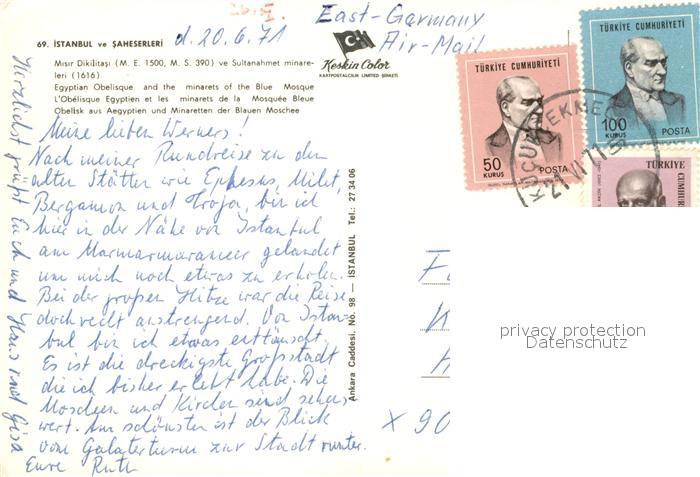 26.
East-Germany
Air-Mail
d. 20.6.71
69. İSTANBUL ve ŞAHESERLERİ
Mısır Dikilitaşı (M. E. 1500, M. S. 390) ve Sultanahmet minare-
leri (1616)
Egyptian Obelisque and the minarets of the Blue Mosque
L'Obélisque Egyptien et les minarets de la Mosquée Bleue
Obelisk aus Aegyptien und Minaretten der Blauen Moschee
Keskin Color
KARTPOSTALCILIK LIMITED ŞİRKETİ
Meine lieben Werners!
Nach meiner Rundreise zu den
alten Stätten wie Ephesus, Milet,
Bergamon und Troja, bin ich
hier in der Nähe von Istanbul
am Marmarameer gelandet
um mich noch etwas zu erholen.
Bei der großen Hitze war die Reise
doch recht anstrengend. Von Istan-
bul bin ich etwas enttäuscht.
Es ist die dreckigste Großstadt
die ich bisher erlebt habe. Die
Moscheen und Kirchen sind sehens-
wert. Am schönsten ist der Blick
vom Galaterturm zur Stadt runter.
Eure Ruth
Herzlichst grüßt Euch und Hans und Gisa
Ankara Caddesi, No. 98 — İSTANBUL Tel.: 27 34 06
TÜRKİYE CUMHURİYETİ
50
KURUŞ
POSTA
TÜRKİYE CUMHURİYETİ
100
KURUŞ
POSTA
TÜRKİYE
CUMHUR
KÜÇÜKÇEKMECE
X 90
privacy protection
Datenschutz